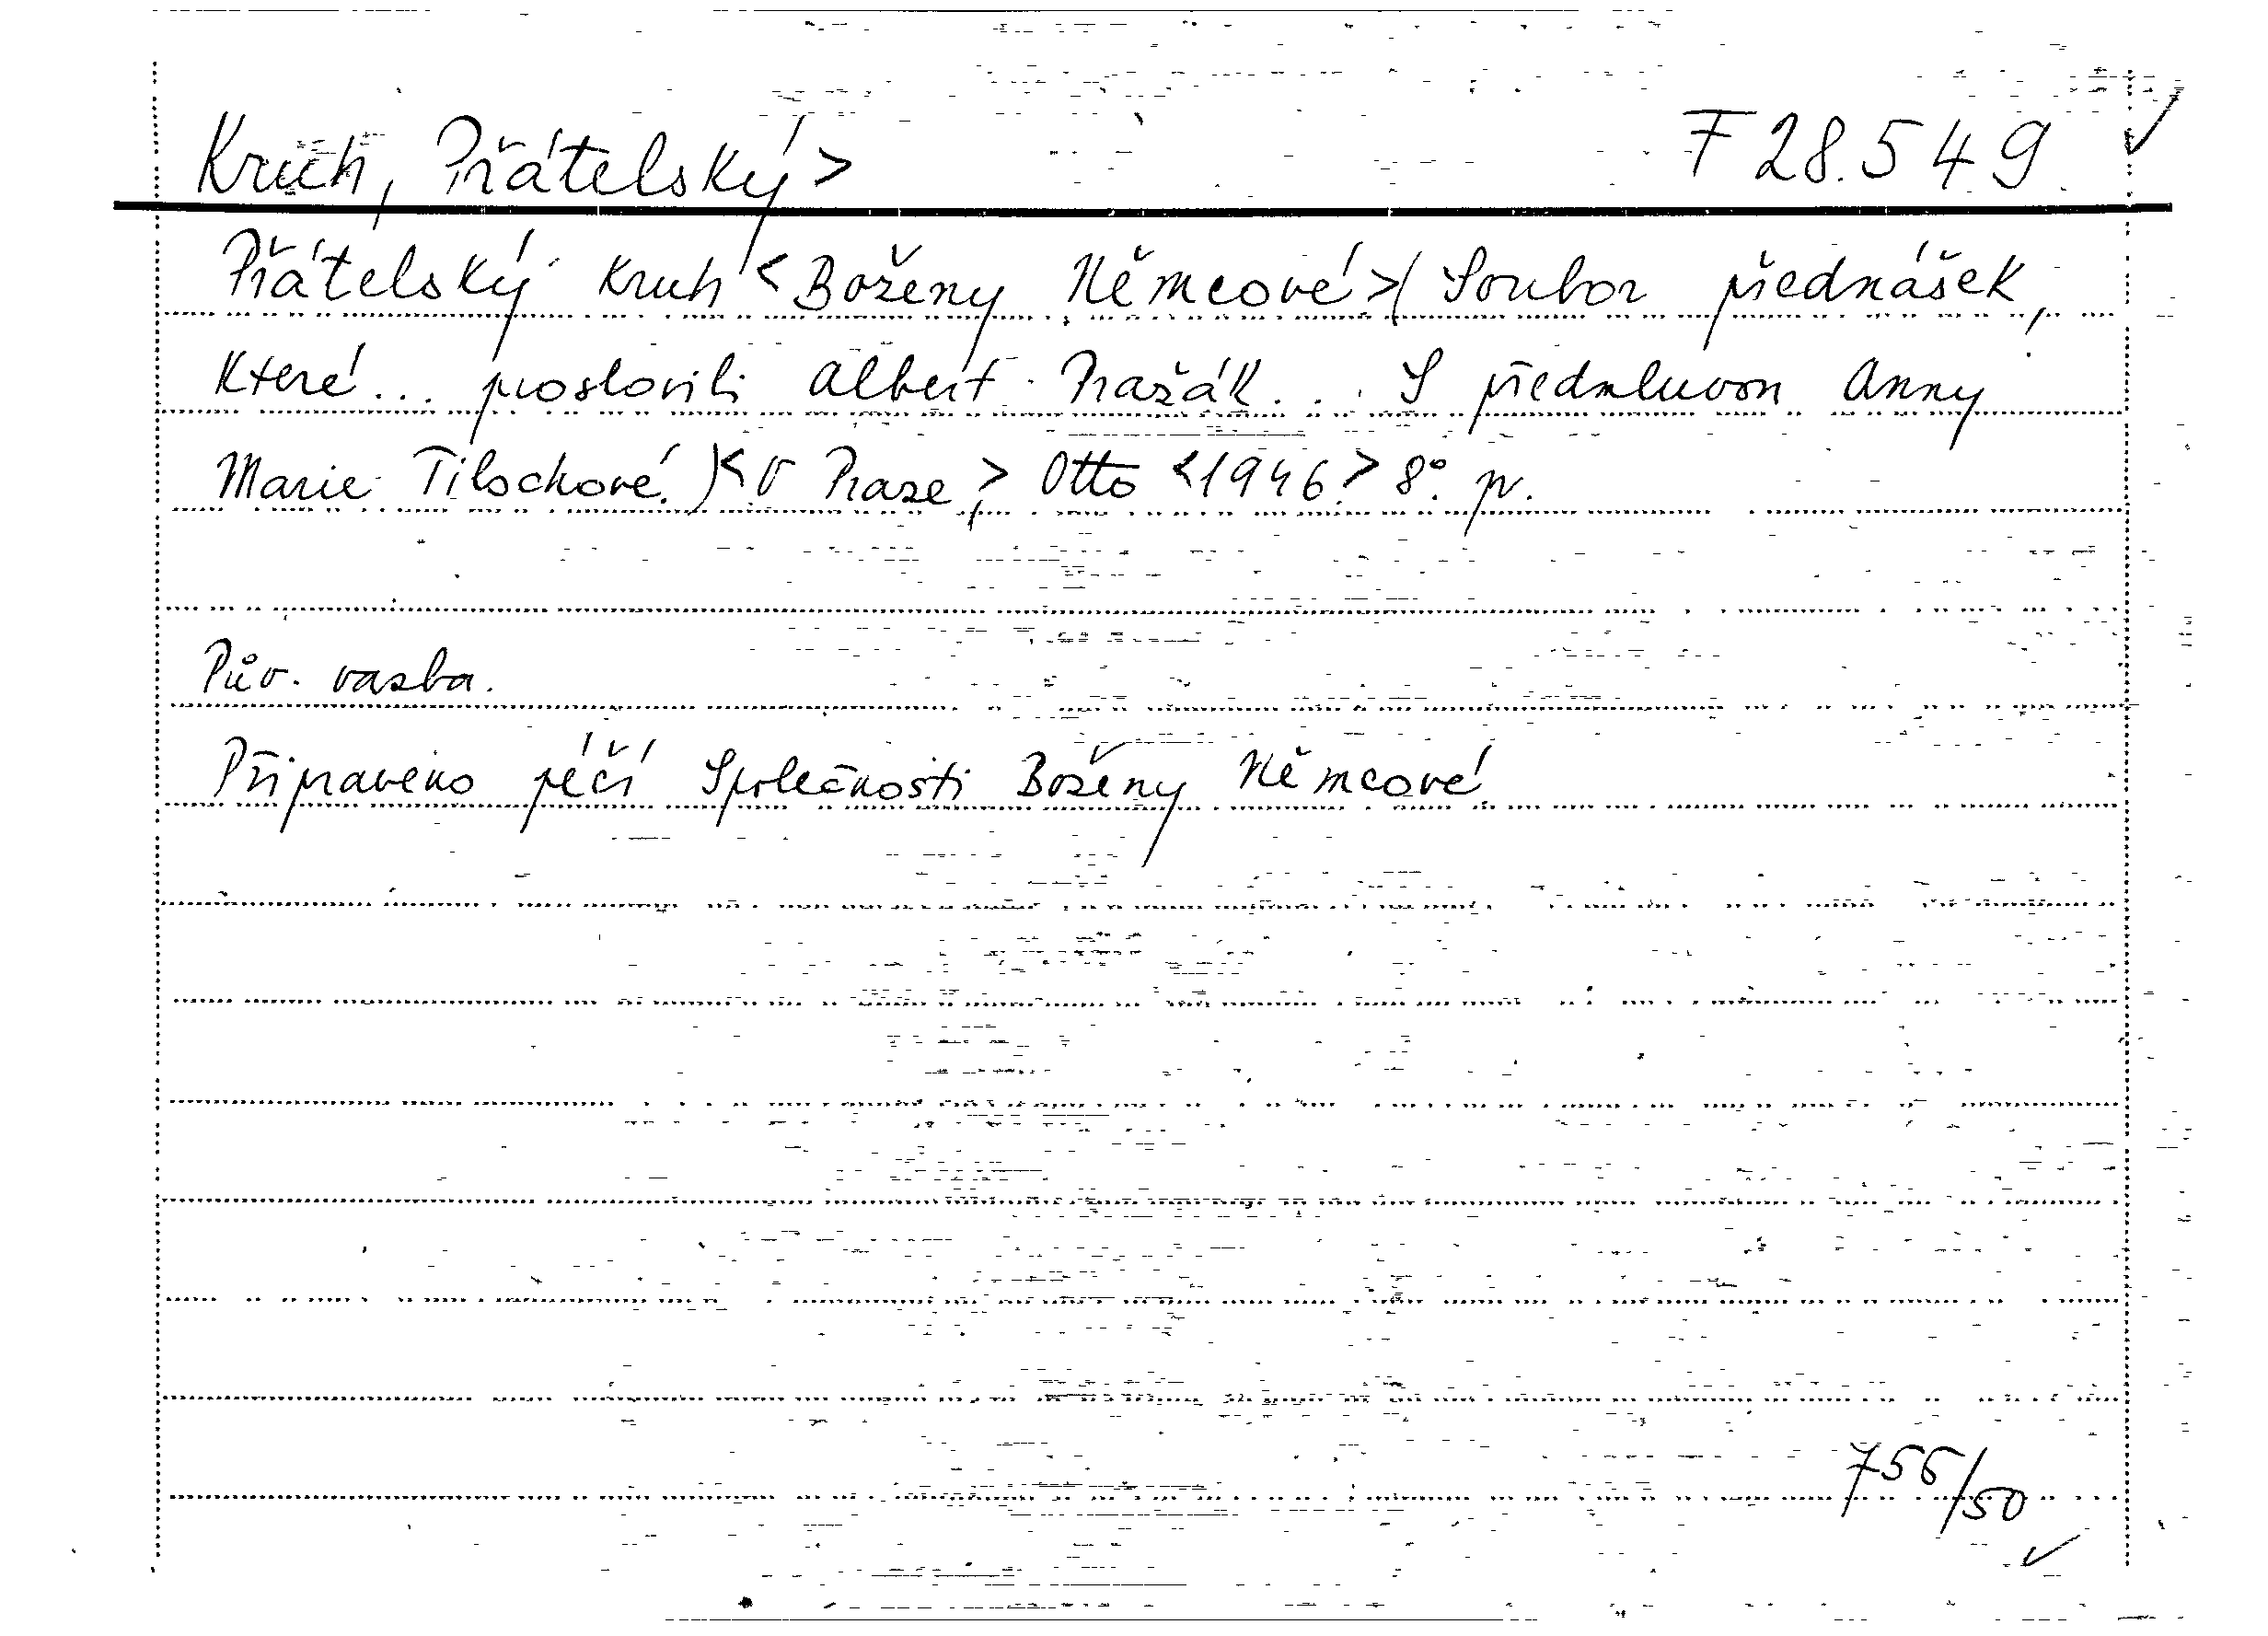 Kruh, Přátelský > F 28.549 ✓
Přátelský kruh < Boženy Němcové > ( Soubor přednášek,
které... proslovili Albert Pražák... S předmluvou Anny
Marie Tilschové. ) < V Praze, > Otto < 1946. > 8°. pv.
Pův. vazba.
Připraveno péčí Společnosti Boženy Němcové.
756/50 ✓